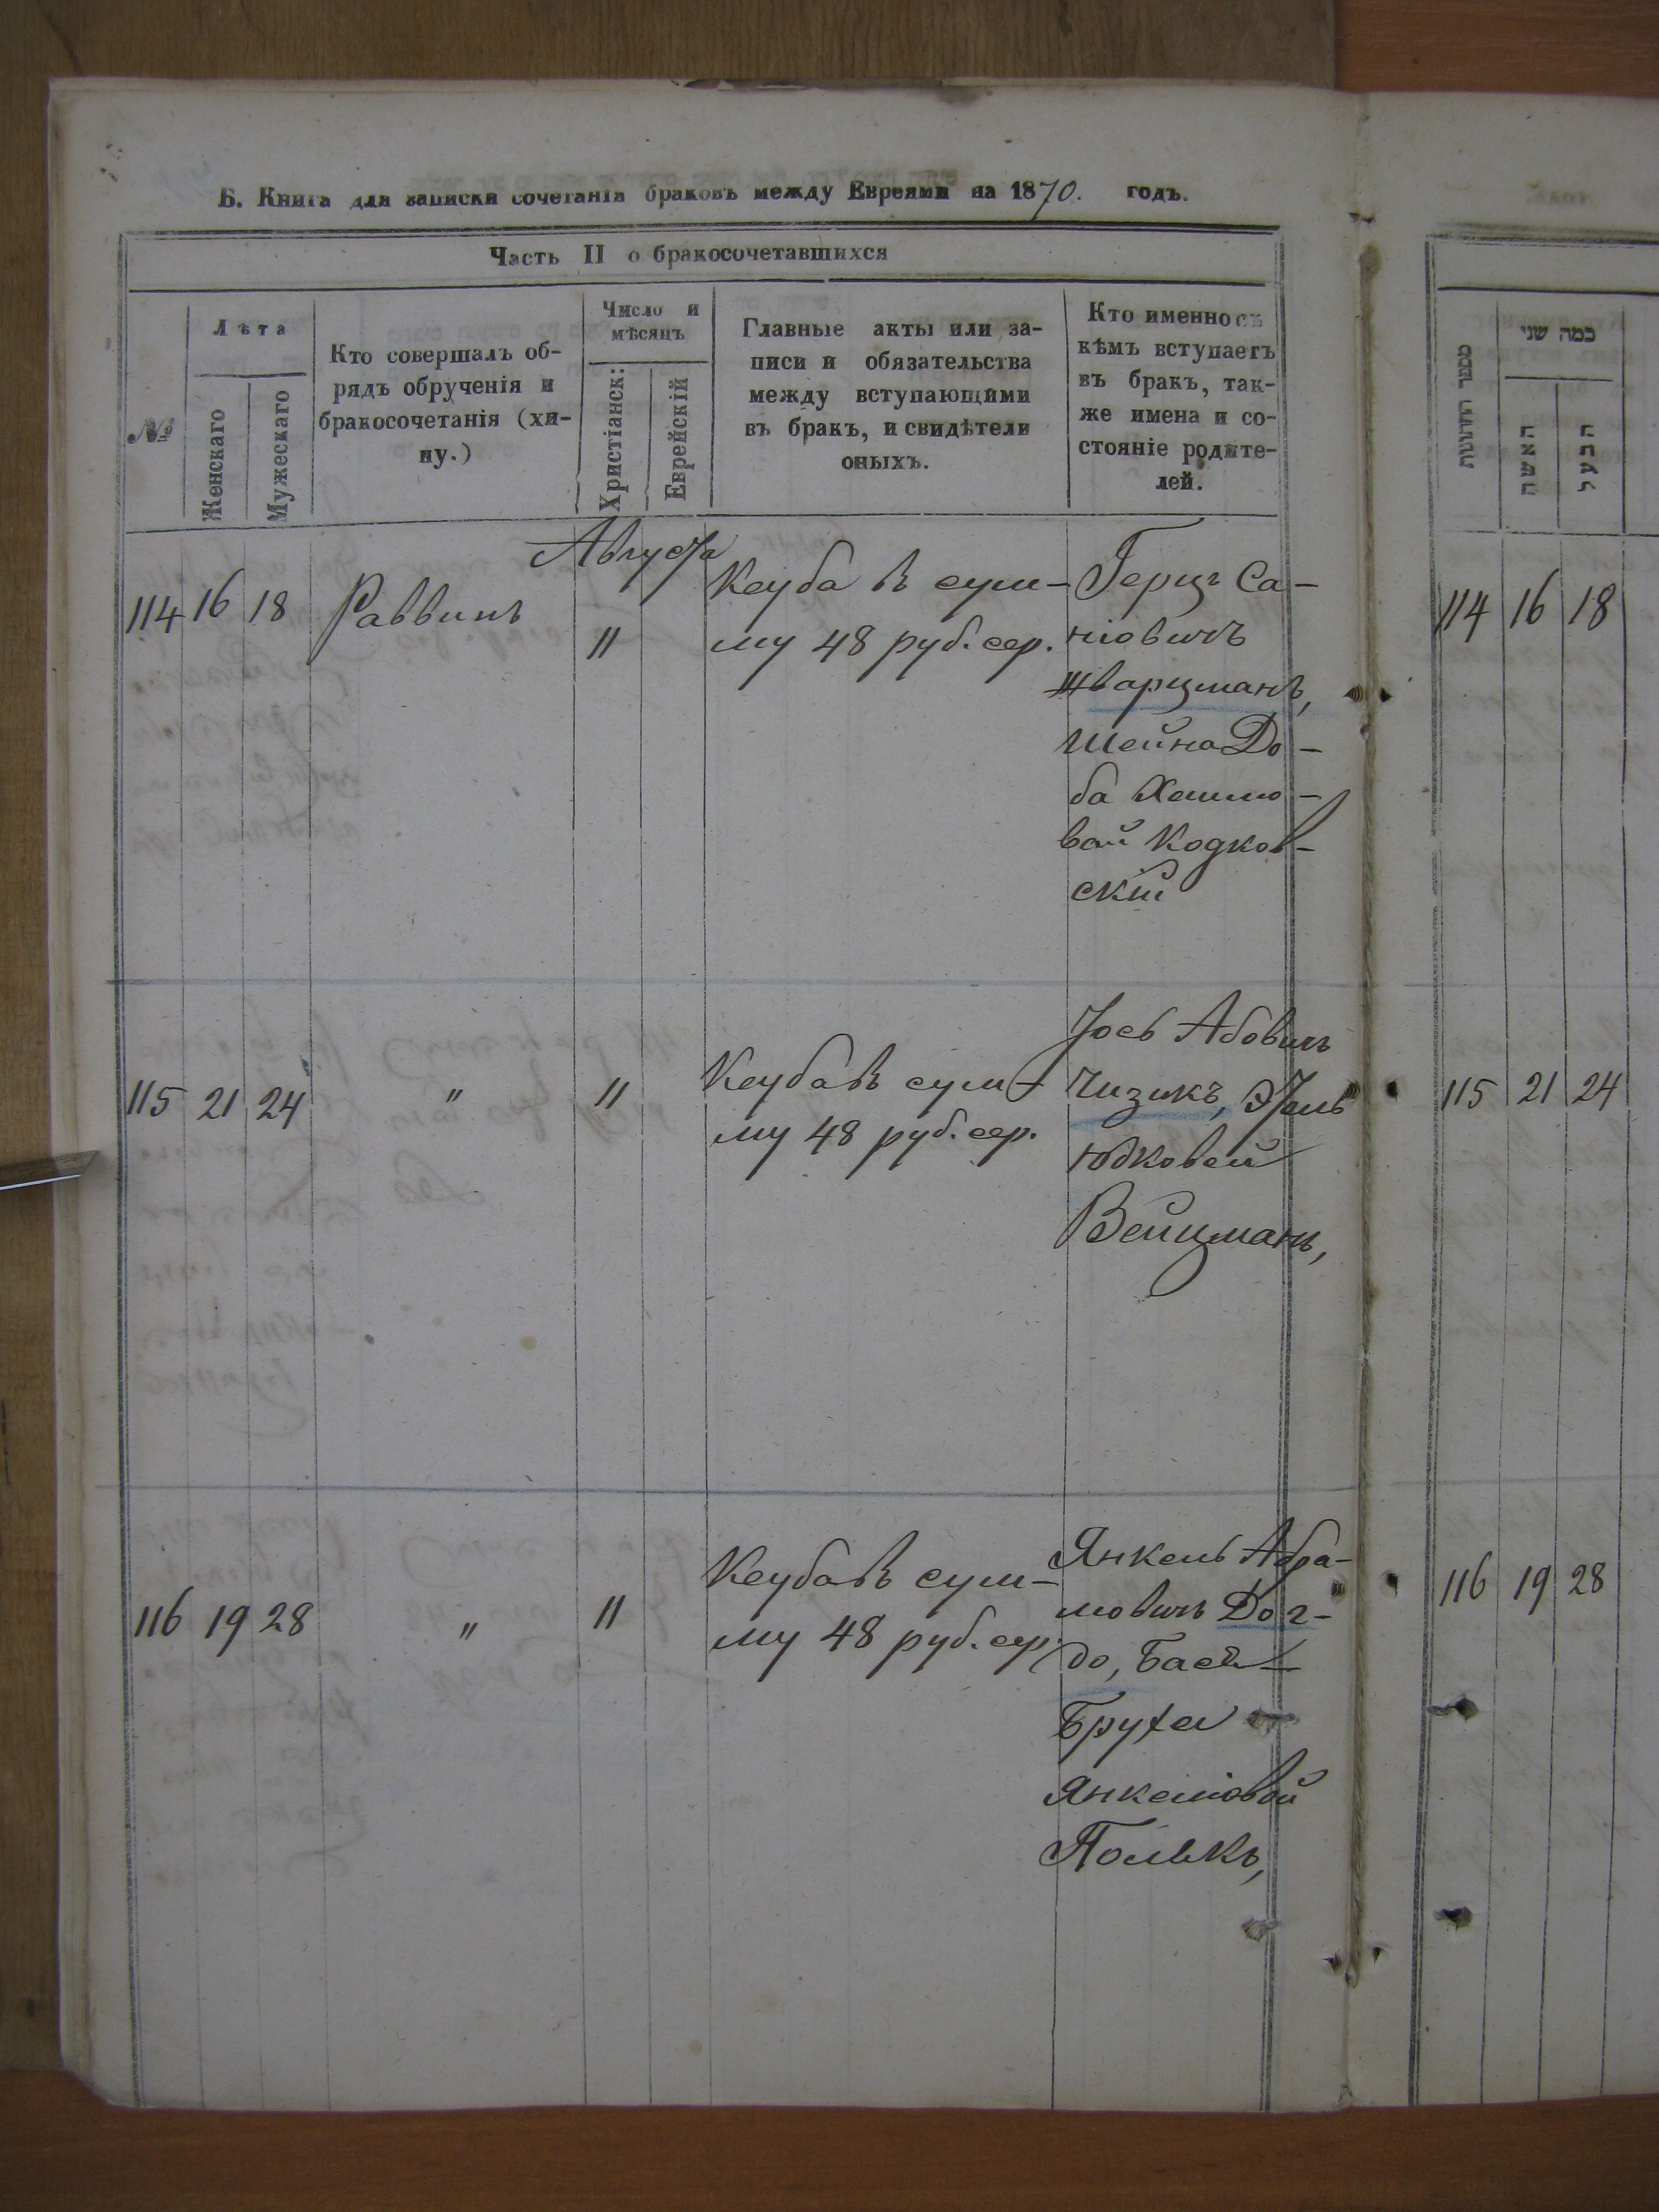 Б. Книга для записки сочетанія браковъ между Евреями на 1870. годъ.
Часть II о бракосочетавшихся
№
Лѣта
Женскаго
Мужескаго
Кто совершалъ об-
рядъ обрученія и
бракосочетанія (хи-
пу.)
Число и
мѣсяцъ
Христіанск:
Еврейскій
Главные акты или за-
писи и обязательства
между вступающими
въ бракъ, и свидѣтели
оныхъ.
Кто именно съ
кѣмъ вступаетъ
въ бракъ, так-
же имена и со-
стояніе родите-
лей.
Августа
114 16 18 Раввинъ 11
Кеуба въ сум-
му 48 руб. сер.
Герцъ Са-
ніовичъ
Шварцманъ,
Шейна До-
ба Хаимо-
вой Кодков-
скій
115 21 24 " 11
Кеуба въ сум-
му 48 руб. сер.
Іось Абовичъ
Чизикъ, Этель
Юдковой
Вейцманъ,
116 19 28 " 11
Кеуба въ сум-
му 48 руб. сер.
Янкель Абра-
мовичъ Дог-
до, Бася
Бруха
Янкеліовой
Полькъ,
כמה שני
האשה
הבעל
114 16 18
115 21 24
116 19 28